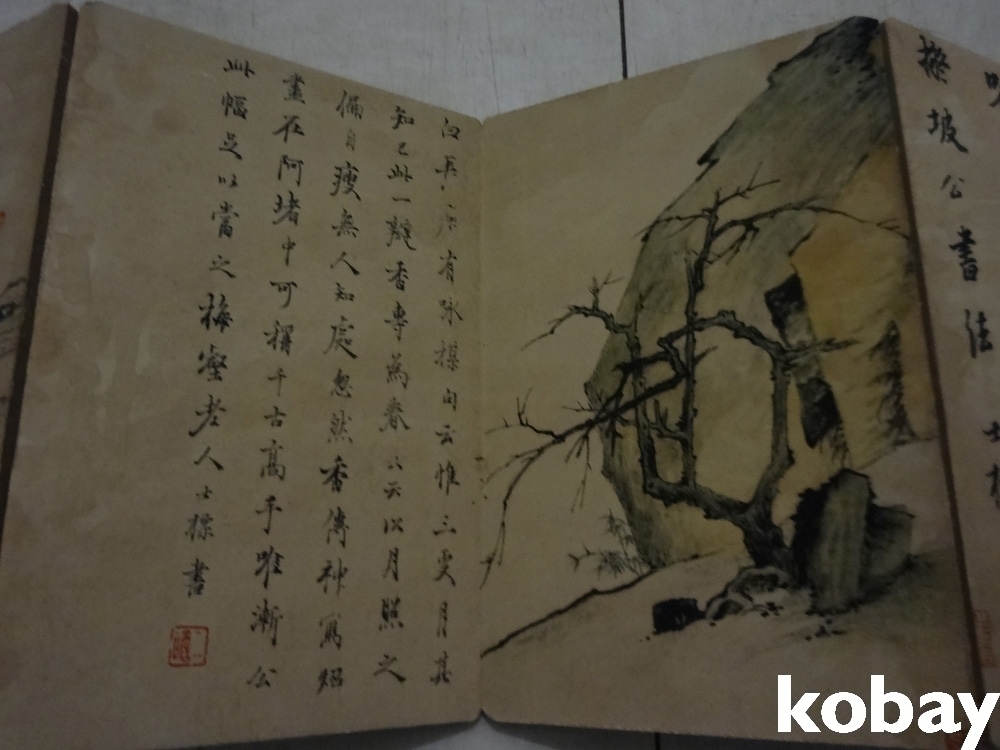 明
坡公書法 士標
有咏楳句云惟三更月其
知己此一瓣香專為春々云以月照之
偏自瘦無人知處忽然香傳神寫炤
盡在阿堵中可稱千古高手唯漸公
此幅足以當之梅壑老人士標書
kobay